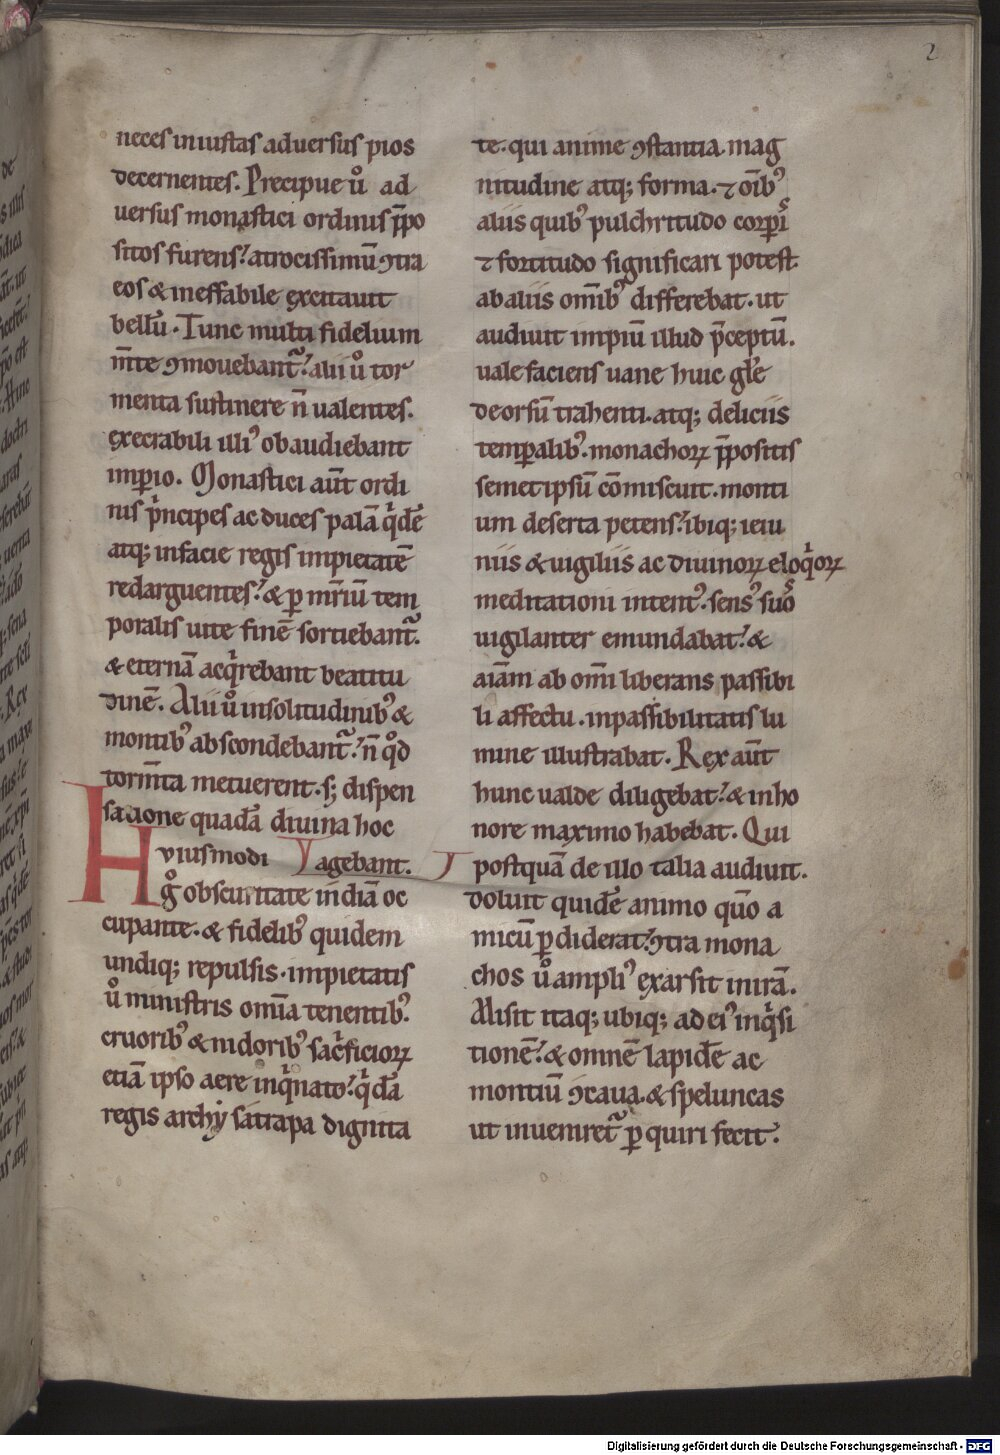 2
neces iniustas aduersus pios
decernentes. Precipue uͦ ad
uersus monastici ordinis p̄po
sitos furens. atrocissimū ꝯtra
eos & ineffabile excitauit
bellū. Tunc multi fidelium
m̄te ꝯmouebant᷑. alii uͦ tor
menta sustinere n̄ ualentes.
execrabili illiꝰ obaudiebant
imꝑio. Monastici aūt ordi
nis pͥncipes ac duces palā qͥdē
atq; in facie regis impietatē
redarguentes. & ꝑ mr̄iū tem
poralis uite finē sortiebant᷑.
& eternā acqͥrebant beatitu
dinē. Alii uͦ in solitudinibꝰ &
montibꝰ abscondebant᷑. n̄ qͦd
torm̄ta metuerent. s; dispen
satione quadā diuina hoc
agebant.
Huiusmodi
gͦ obscuritate indiā oc
cupante. & fidelibꝰ quidem
undiq; repulsis. impietatis
uͦ ministris om̄ia tenentibꝰ.
cruoribꝰ & nidoribꝰ sacͥficioꝝ
etiā ipso aere inqͥnato. qͥdā
regis archẏ satrapa dignita
te. qui anime ꝯstantia. mag
nitudine atq; forma. ⁊ oīb᷒
aliis quibꝰ pulchritudo corꝑis
⁊ fortitudo significari potest.
ab aliis omībꝰ differebat. ut
audiuit impiū illud p̄ceptū.
uale faciens uane huic gl̄e
deorsū trahenti. atq; deliciis
temꝑalibꝰ. monachoꝝ p̄positis
semetipsū cōmiscuit. monti
um deserta petens. ibiq; ieiu
niis & uigiliis ac diuinoꝝ eloqͥoꝝ
meditationi intentꝰ. sensꝰ suos
uigilanter emundabat. &
aīam ab omī liberans passibi
li affectu. inpassibilitatis lu
mine illustrabat. Rex aūt
hunc ualde diligebat. & in ho
nore maximo habebat. Qui
postquā de illo talia audiuit.
doluit quidē animo qm̄o a
micū ꝑdiderat. ꝯtra mona
chos uͦ ampliꝰ exarsit in irā.
Misit itaq; ubiq; ad eiꝰ inqͥsi
tionē. & omnē lapidē ac
montiū ꝯcaua. & speluncas
ut inueniret᷑ ꝑquiri fecit.
Digitalisierung gefördert durch die Deutsche Forschungsgemeinschaft - DFG